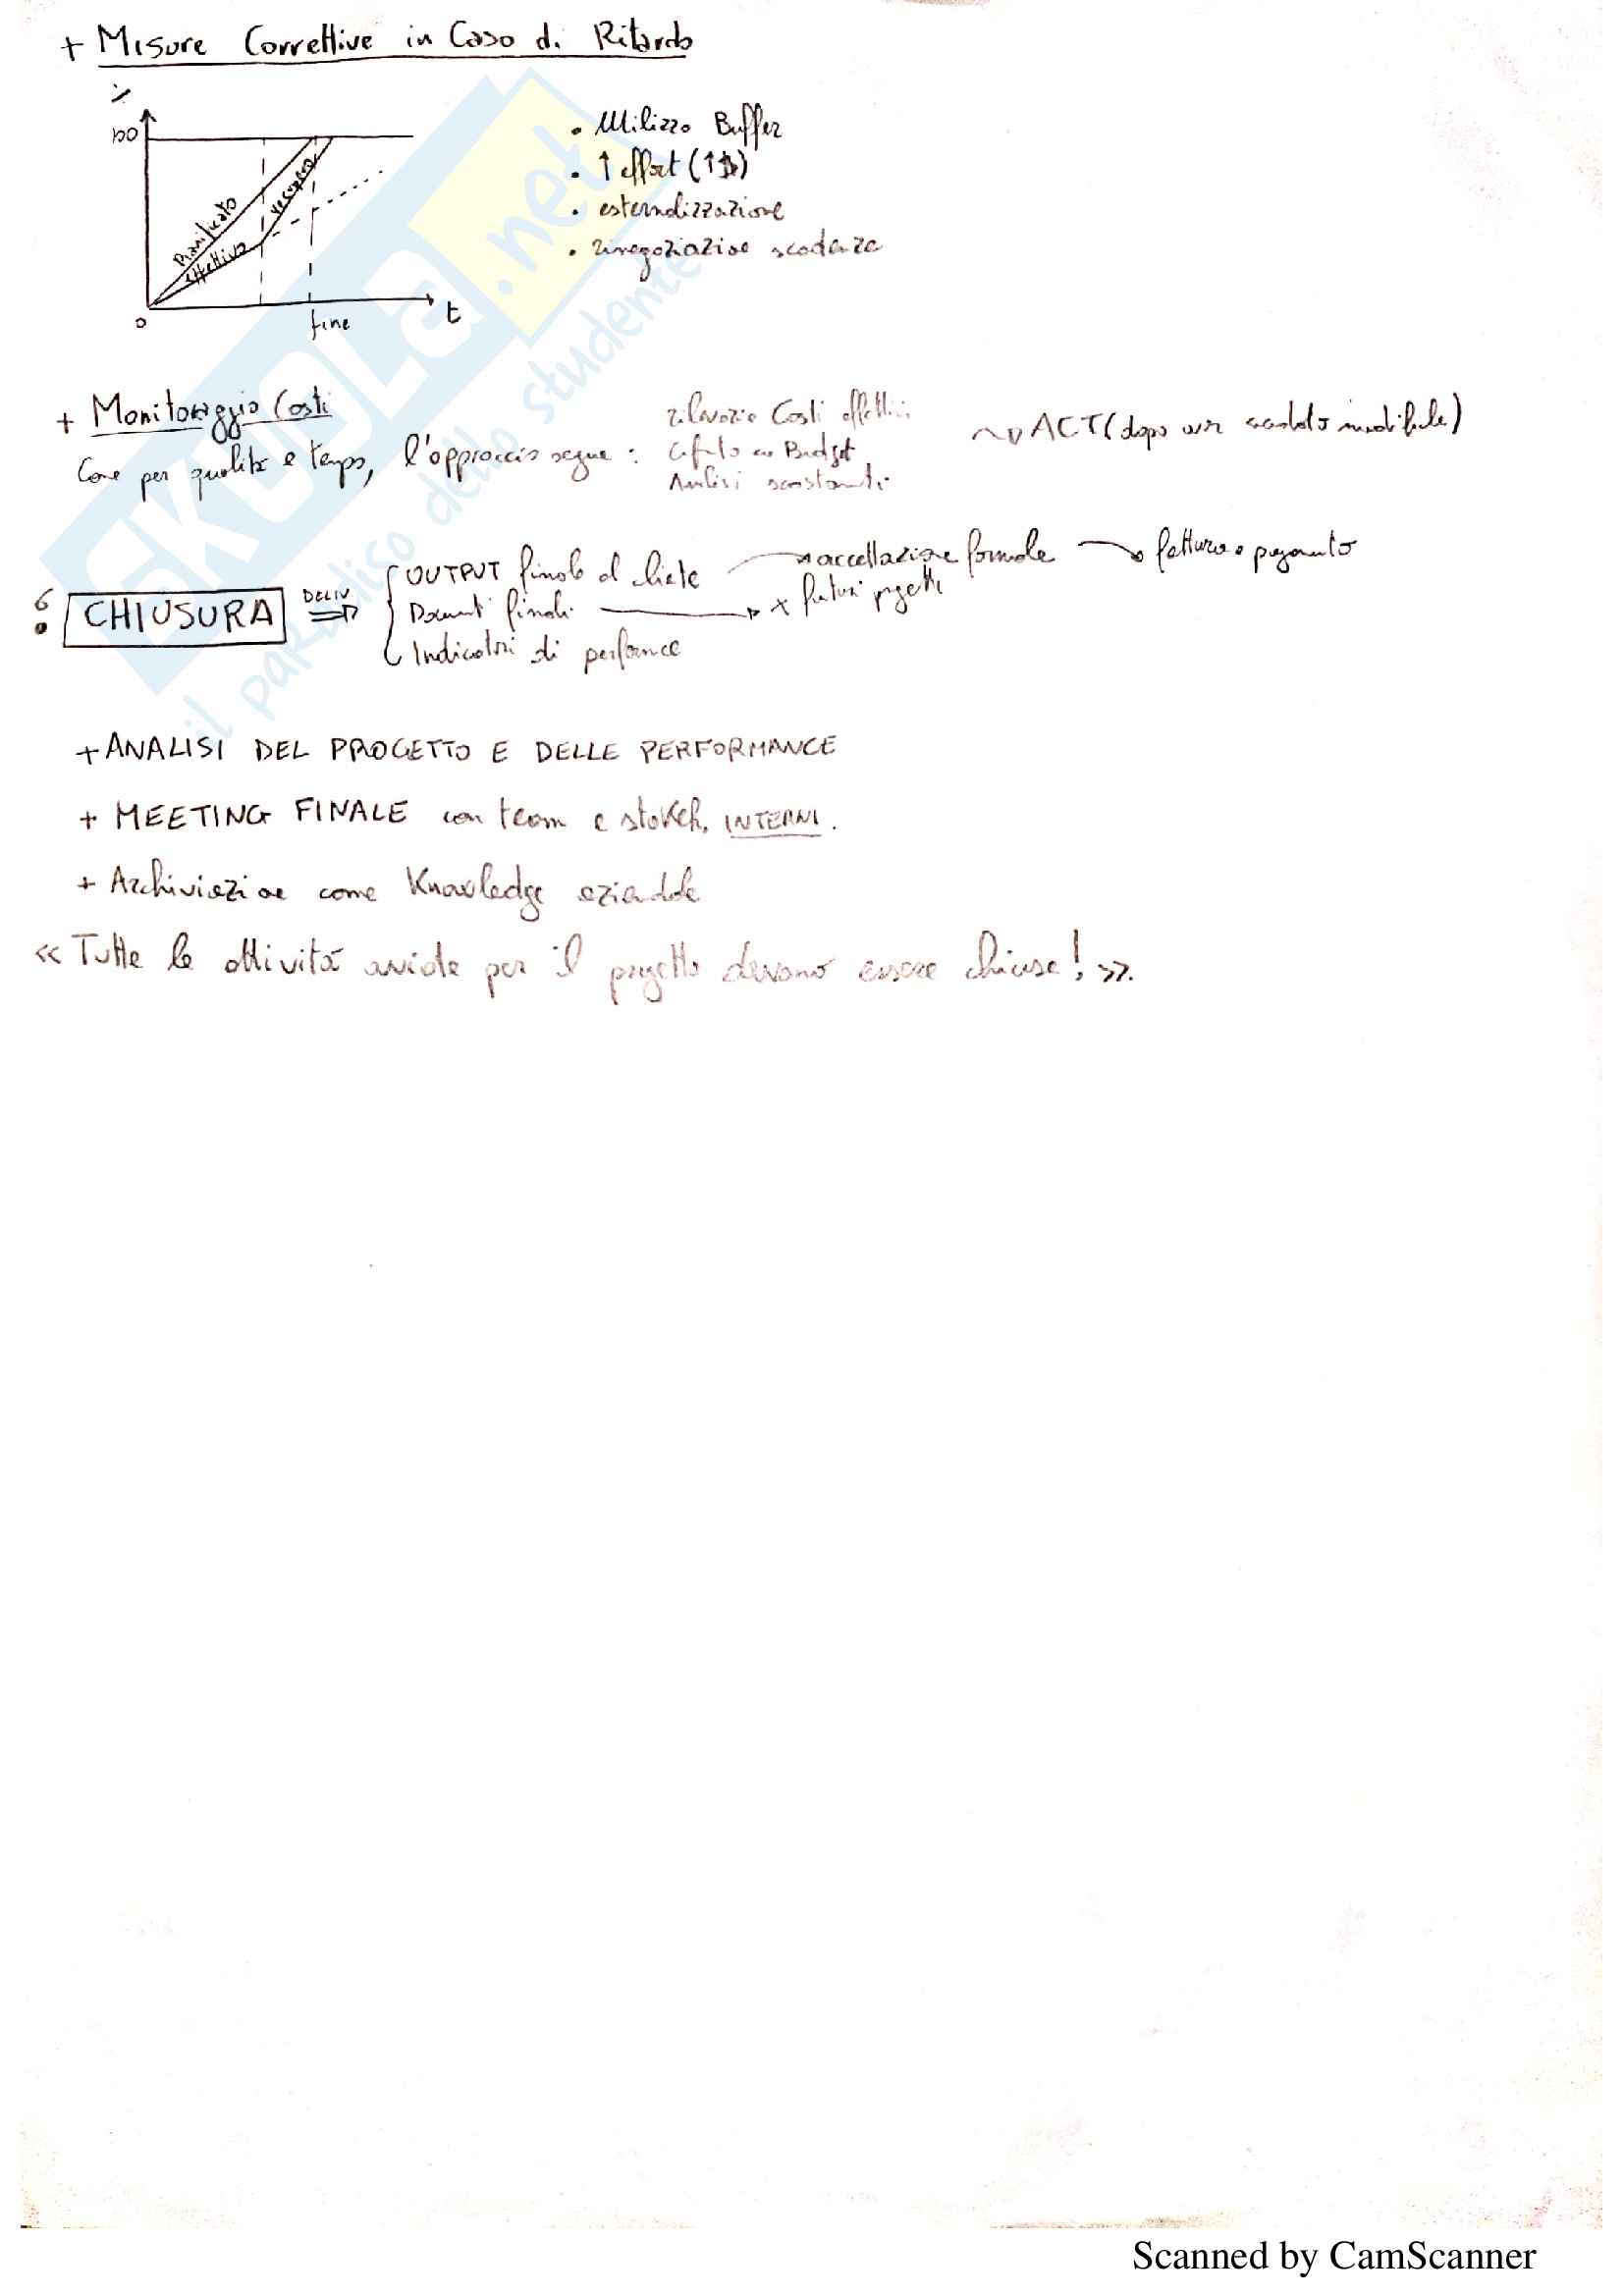 + Misure Correttive in Caso di Ritardo
%
100
Pianificato
effettivo
recupero
0
fine
t
• Utilizzo Buffer
• ↑ effort (↑$)
• esternalizzazione
• rinegoziazione scadenze
+ Monitoraggio Costi
Come per qualità e tempo, l'approccio segue :
rilevazio Costi effettivi
Budget
Analisi scostamenti
ACT (dopo aver
6
CHIUSURA
DELIV
OUTPUT finale al cliente
accettazione formale
fattura e pagamento
Documenti finali
x futuri progetti
Indicatori di performance
+ ANALISI DEL PROGETTO E DELLE PERFORMANCE
+ MEETING FINALE con team e stakeh. INTERNI.
+ Archiviazione come Knowledge aziendale
« Tutte le attività avviate per il progetto devono essere chiuse! ».
SKUOLA.net
il paradiso dello studente
Scanned by CamScanner